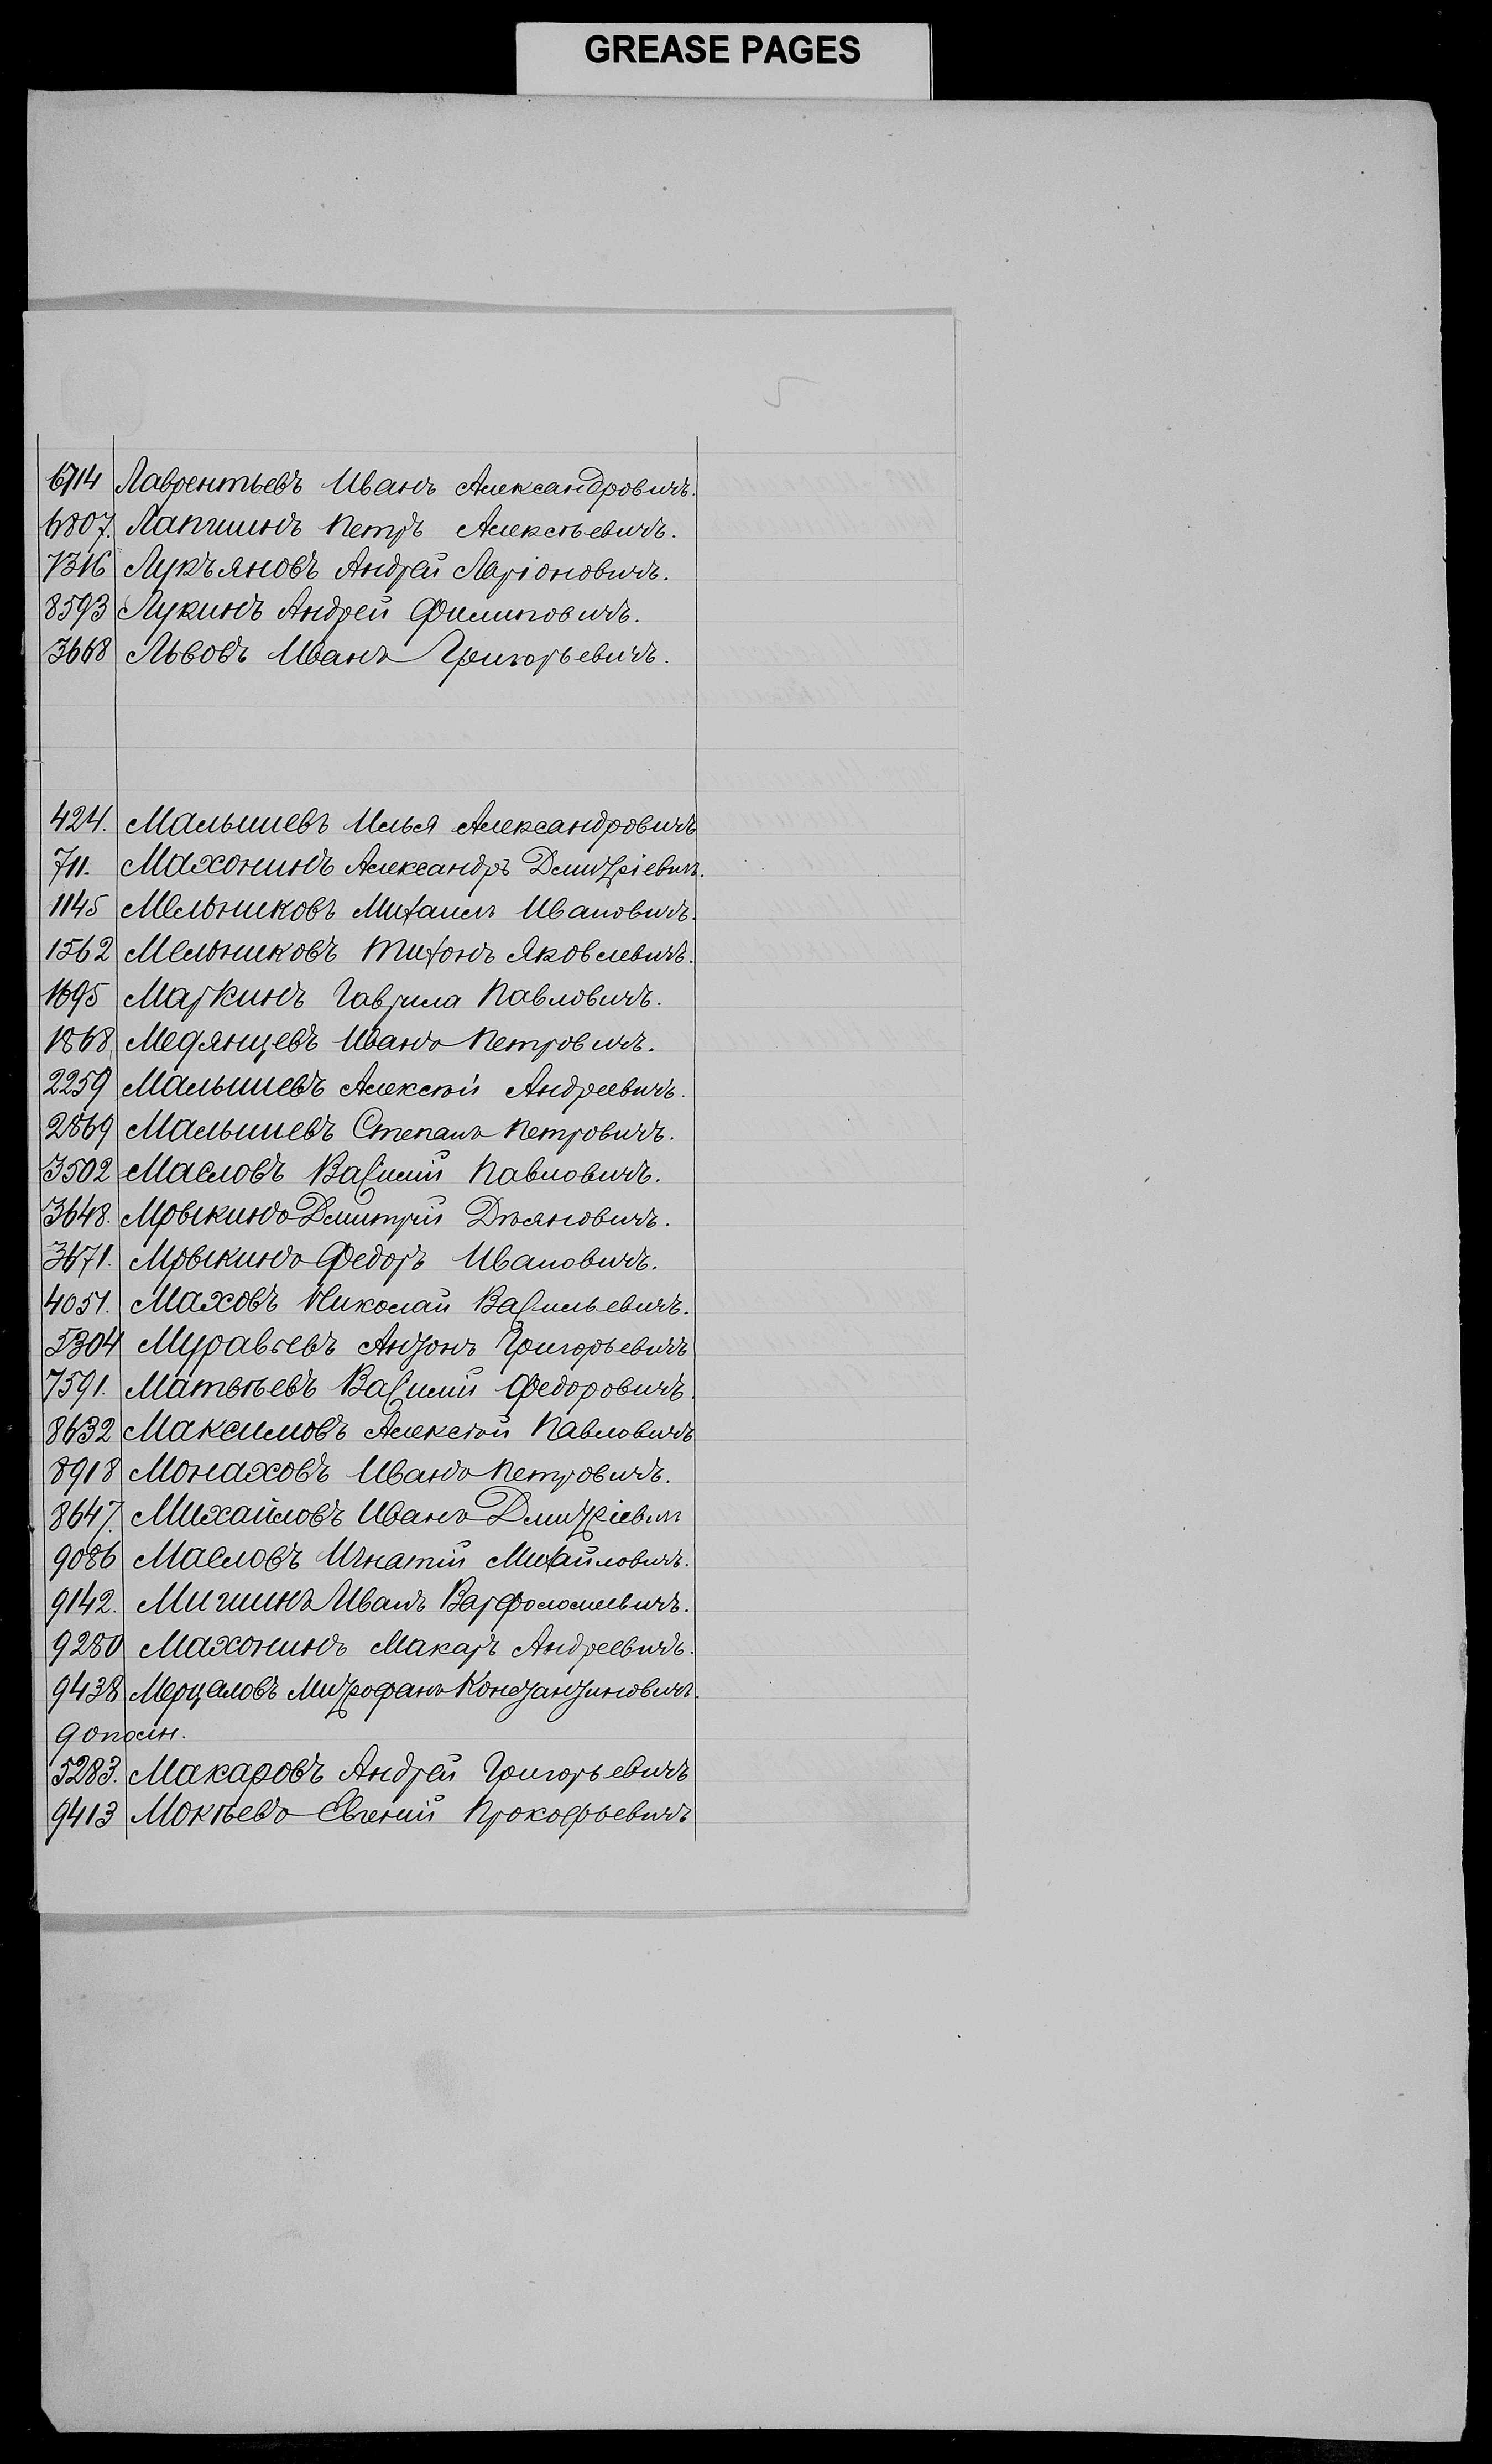 GREASE PAGES
5
6714 Лаврентьевъ Иванъ Александровичъ.
6807. Лапшинъ Петръ Алексѣевичъ.
7316 Лукъяновъ Андрей Ларіоновичъ.
8593 Лукинъ Андрей Филиповичъ.
3668 Львовъ Иванъ Григорьевичъ.
424. Малышевъ Илья Александровичъ
711. Махонинъ Александръ Дмитріевичъ.
1145 Мельниковъ Михаилъ Ивановичъ.
1562 Мельниковъ Тихонъ Яковлевичъ.
1695 Маркинъ Гаврила Павловичъ.
1868 Медянцевъ Иванъ Петровичъ.
2259 Малышевъ Алексѣй Андреевичъ.
2869 Малышевъ Степанъ Петровичъ.
3502 Масловъ Василій Павловичъ.
3648. Мрыкинъ Дмитрій Дѣяновичъ.
3671. Мрыкинъ Федоръ Ивановичъ.
4051. Маховъ Николай Васильевичъ.
5304 Муравьевъ Антонъ Григорьевичъ
7591. Матвѣевъ Василій Федоровичъ.
8632 Максимовъ Алексѣй Павловичъ
8918 Монаховъ Иванъ Петровичъ.
8647. Михайловъ Иванъ Дмитріевичъ
9086 Масловъ Игнатій Михайловичъ.
9142. Мишинъ Иванъ Варфоломеевичъ.
9280 Махонинъ Макаръ Андреевичъ.
9438. Мерцаловъ Митрофанъ Константиновичъ.
дополн.
5283. Макаровъ Андрей Григорьевичъ
9413 Мокѣевъ Евгеній Прокофьевичъ